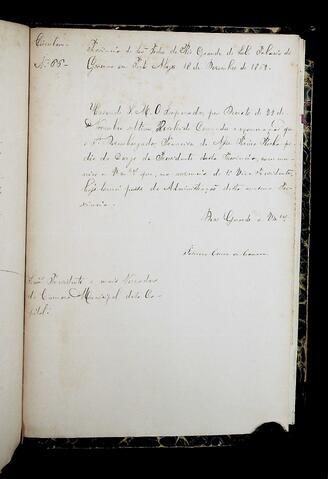 Circular
Nº 85
Provincia de São Pedro do Rio Grande do Sul. Palacio do
Governo em Porto Alegre 18 de Dezembro de 18
Havendo S. M. O Imperador, por Decreto de 29 de
Novembro ultimo, a exoneração que
o Dezembargador Francisco de Assis pe
dio do Cargo de Presidente desta Provincia, com mu
nico a que, na de 1º Vice Presidente,
hoje tomei posse da Administração desta mesma Pro
vincia.
Deos Guarde a
Presidente e mais Vereadores
da Camara Municipal desta Ca
pital.